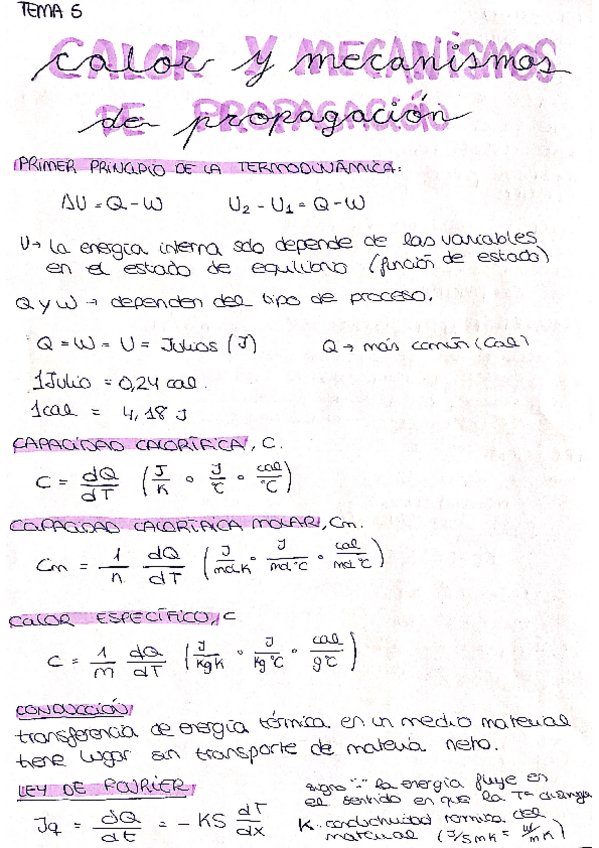 TEMA 5
CALOR Y MECANISMOS
DE PROPAGACIÓN
calor y mecanismos
de propagación
PRIMER PRINCIPIO DE LA TERMODINÁMICA:
ΔU = Q - W U₂ - U₁ = Q - W
U → La energía interna solo depende de las variables
en el estado de equilibrio (función de estado)
Q y W → dependen del tipo de proceso.
Q = W = U = Julios (J) Q → más común (Cal)
1 Julio = 0,24 cal.
1 cal = 4,18 J
CAPACIDAD CALORÍFICA, C.
C = dQ/dT (J/K o J/°C o cal/°C)
CAPACIDAD CALORÍFICA MOLAR, Cm.
Cm = 1/n dQ/dT (J/mol·K o J/mol°C o cal/mol°C)
CALOR ESPECÍFICO, C
C = 1/m dQ/dT (J/KgK o J/Kg°C o cal/g°C)
CONDUCCIÓN
transferencia de energía térmica en un medio material
tiene lugar sin transporte de materia neto.
LEY DE FOURIER,
signo "-" la energía fluye en
el sentido en que la Tª
Jq = dQ/dt = - KS dT/dX
K. conductividad térmica del
material (J/smK = W/mK)